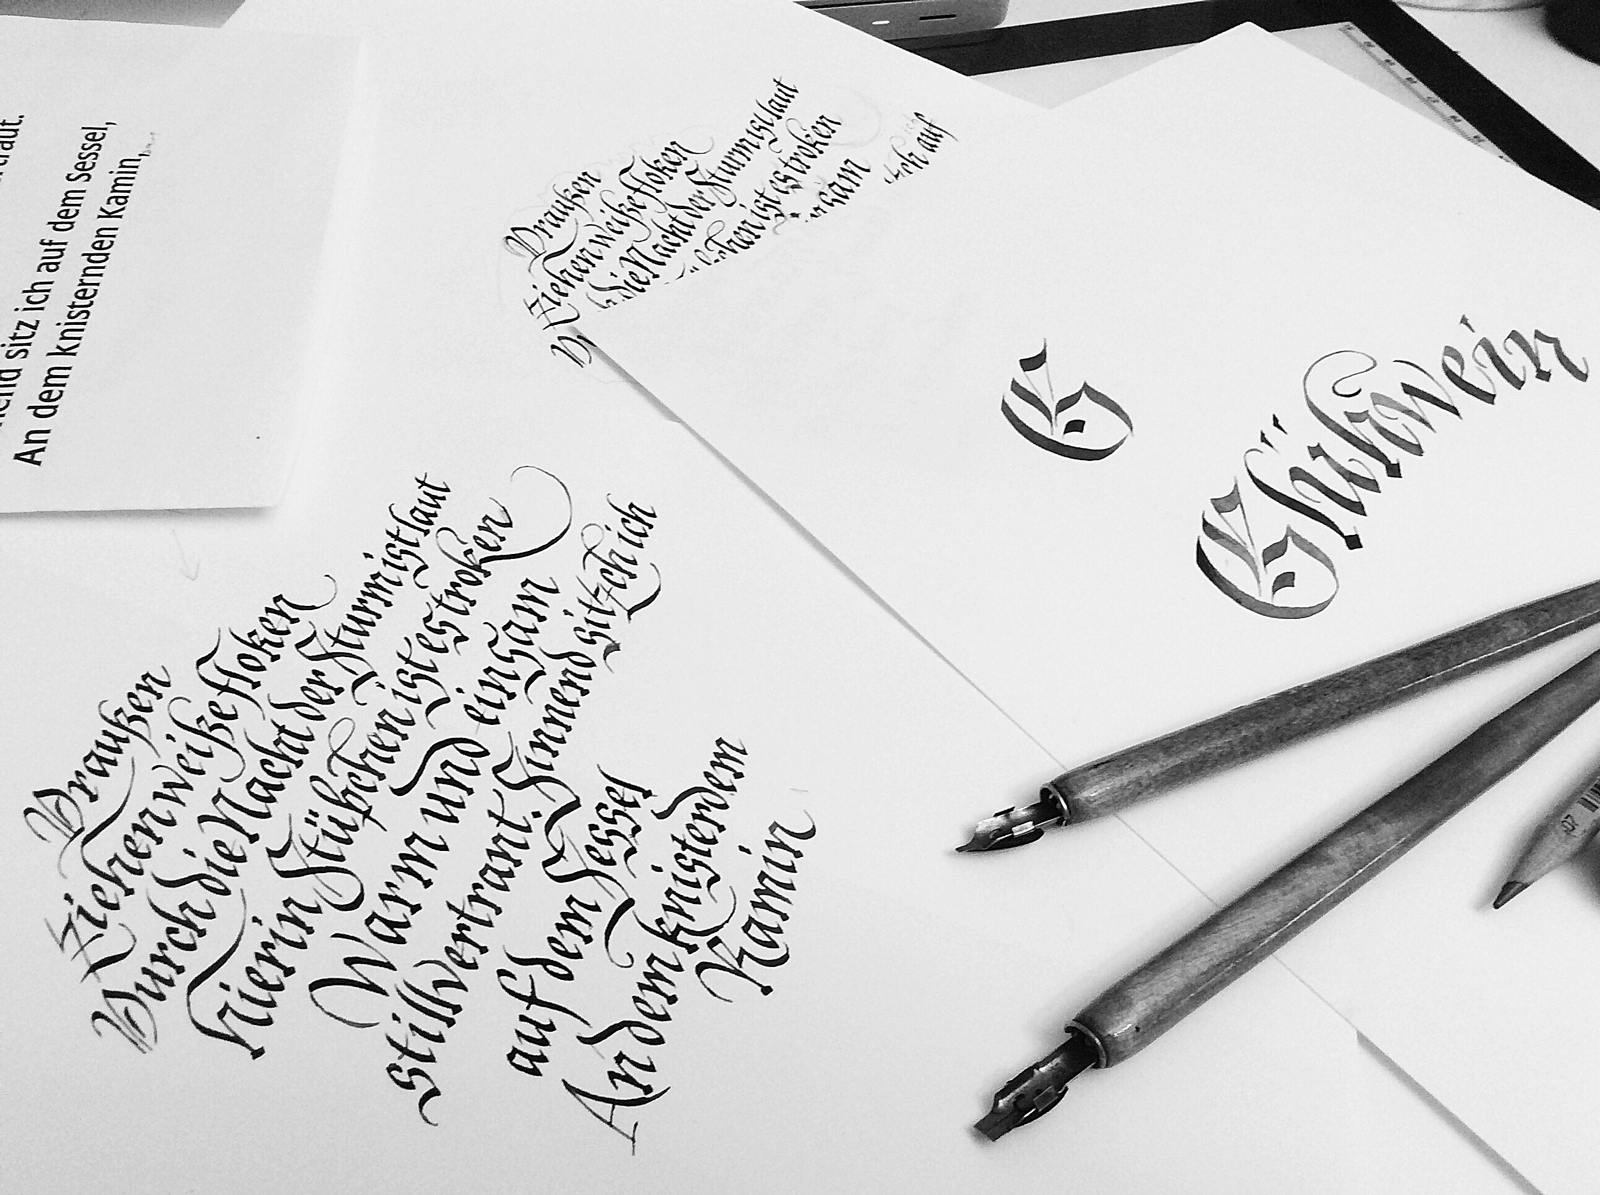 end sitz ich auf dem Sessel,
An dem knisternden Kamin,
Draußen
Ziehen weiße Floken
die Nacht der Sturm ist laut
chen ist es troken
sam
ich auf
G
Glühwein
Draußen
Ziehen weiße Floken
Durch die Nacht der Sturm ist laut
Hier in Stübchen ist es troken
Warm und einsam
still vertraut. Sinnend sitz ich ich
auf dem Sessel
An dem knisterdem
Kamin